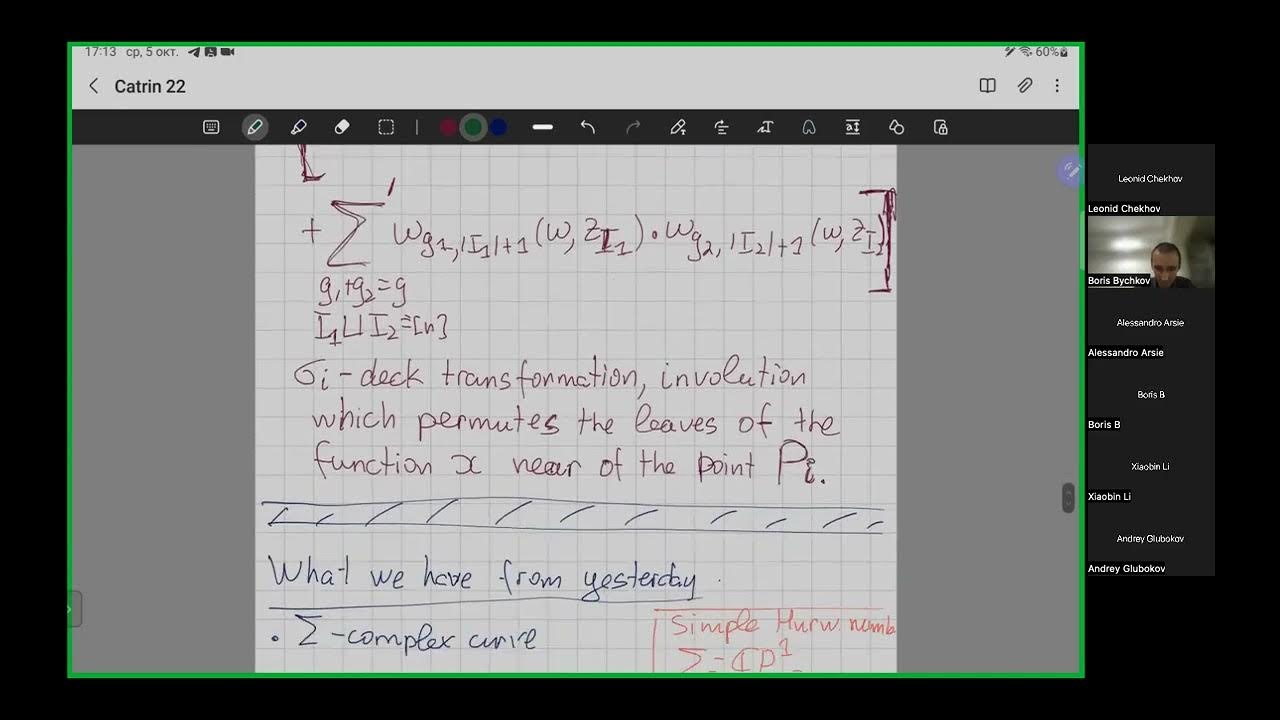 17:13 ср, 5 окт.
60%
Catrin 22
+ Σ' ω_{g_1,|I_1|+1}(w, z_{I_1}) · ω_{g_2,|I_2|+1}(w, z_I)]
g_1+g_2=g
I_1 ⊔ I_2 = [n]
σ_i - deck transformation, involution
which permutes the leaves of the
function x near of the point P_i.
What we have from yesterday
• Σ - complex curve
Simple Hurw numb
Σ = CP^1
Leonid Chekhov
Leonid Chekhov
Boris Bychkov
Alessandro Arsie
Alessandro Arsie
Boris B
Boris B
Xiaobin Li
Xiaobin Li
Andrey Glubokov
Andrey Glubokov